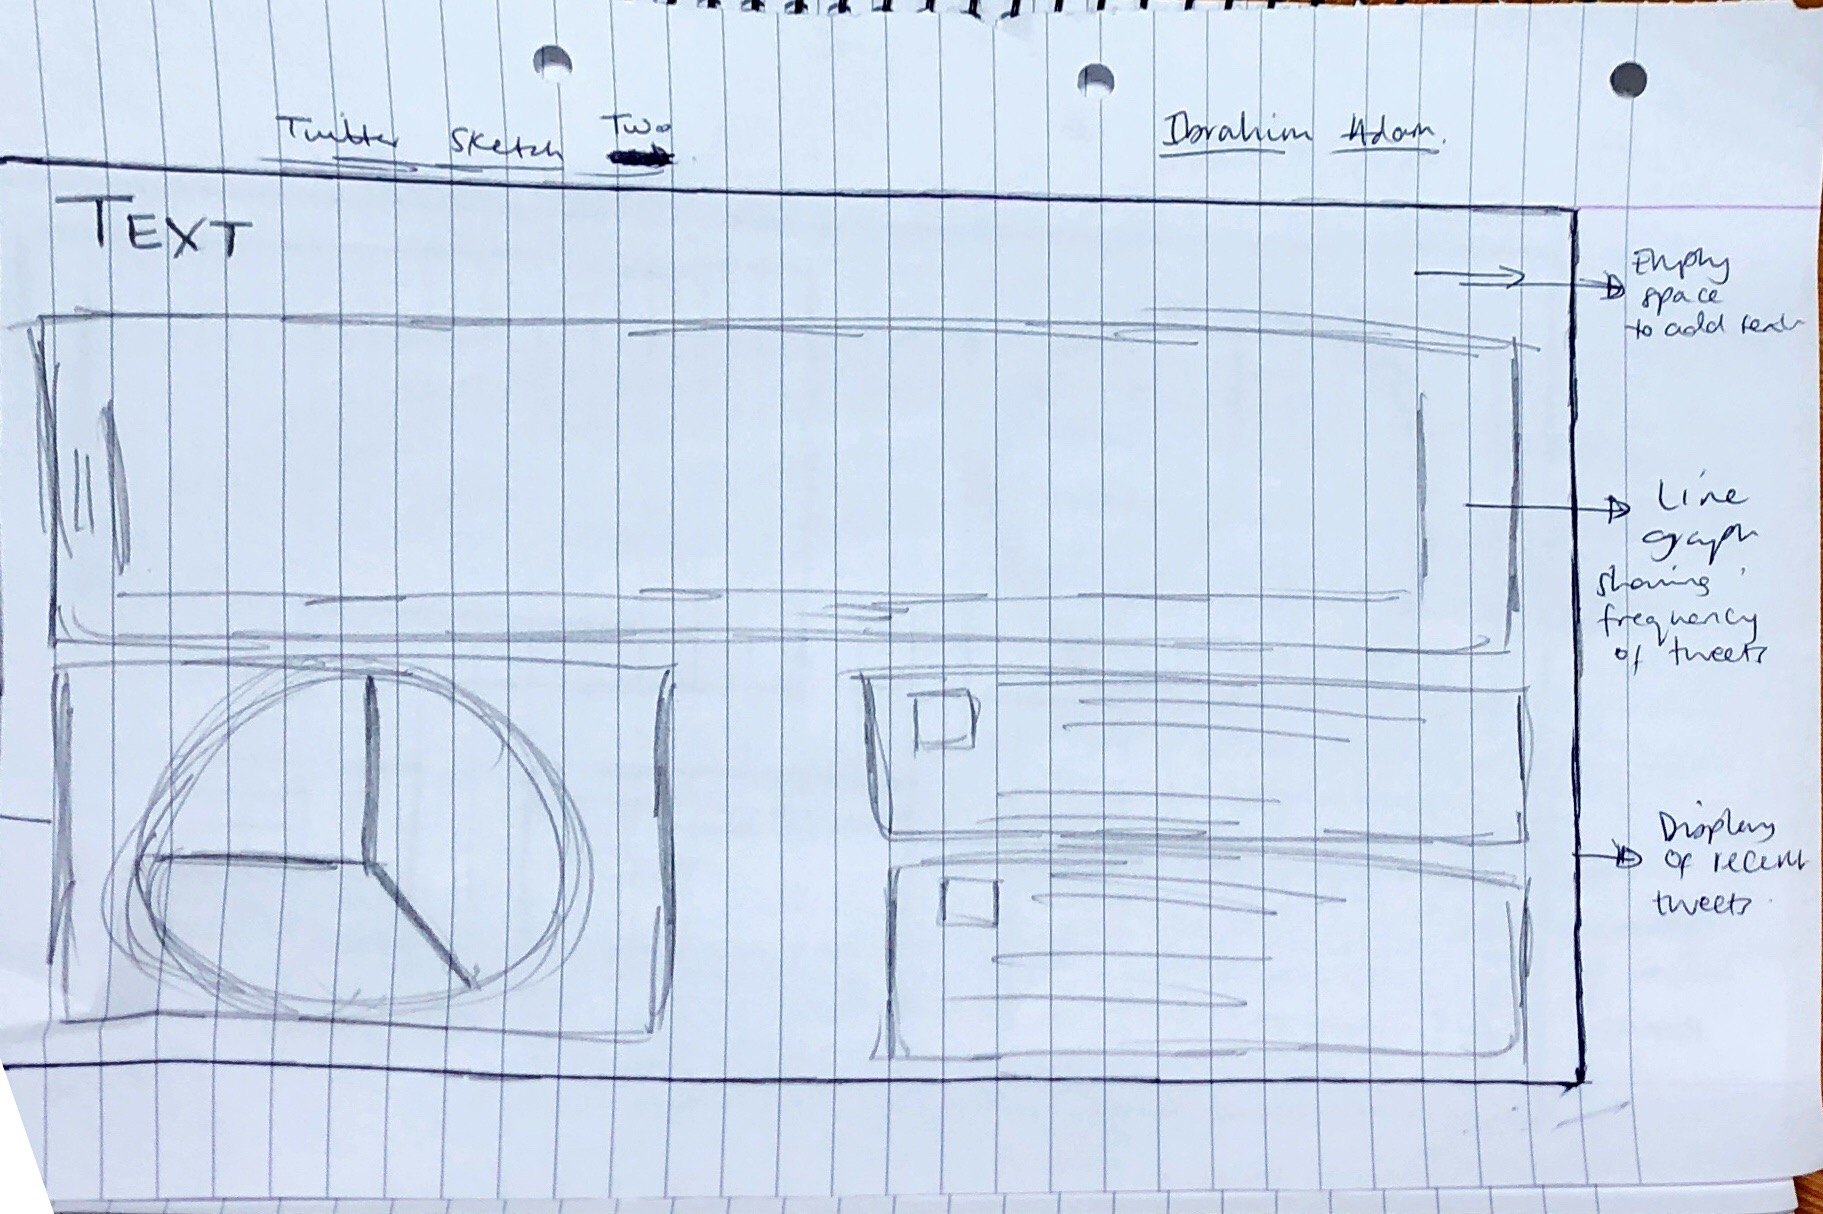 Twitter Sketch Two
Ibrahim Adam.
TEXT
Empty
space
to add text
Line
graph
showing
frequency
of tweets
Display
of recent
tweets